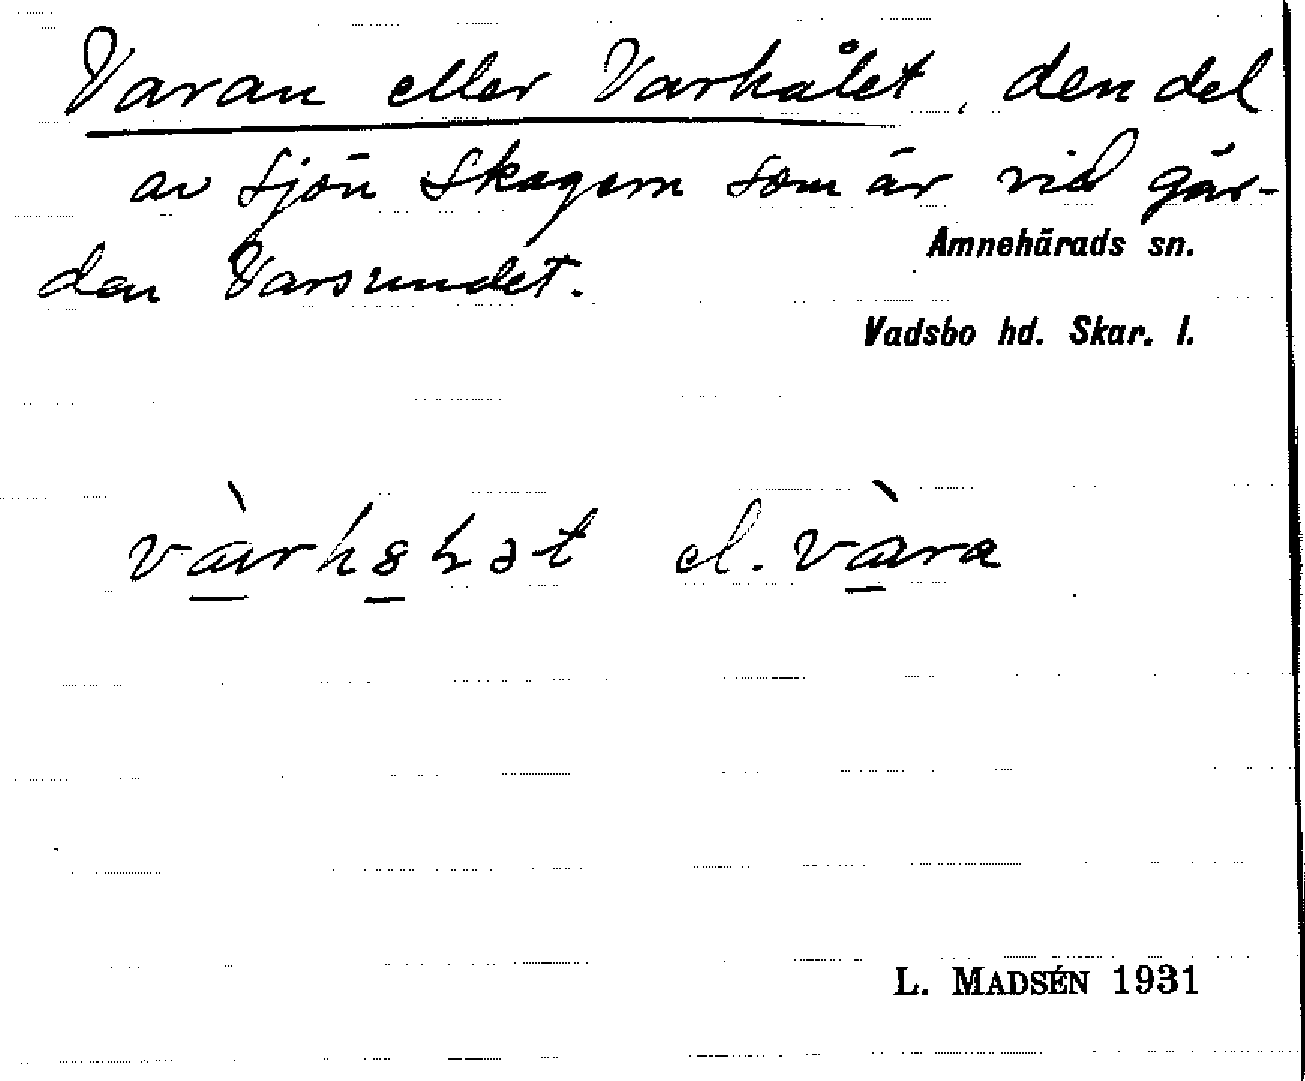 Varan eller Varhålet, den del
av sjön Skagern som är vid går-
den Varsundet.
Amnehärads sn.
Vadsbo hd. Skar. l.
el. vàra
L. MADSÉN 1931